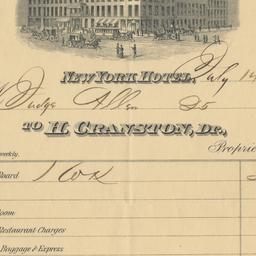 NEW YORK HOTEL, July
Judge Allen 25
TO H. CRANSTON, DR.,
Proprie
weekly.
Board
oom
Restaurant Charges
Baggage & Express